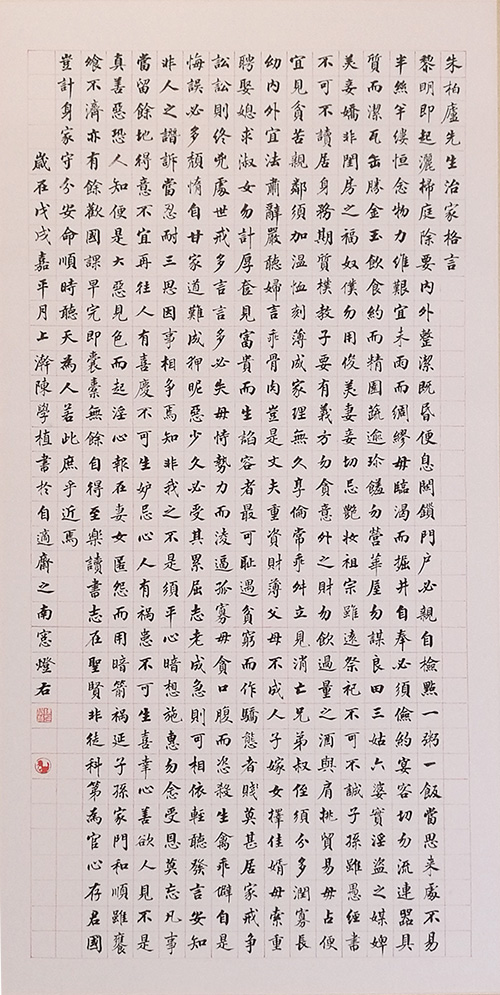 朱柏廬先生治家格言
黎明即起灑掃庭除要內外整潔既昏便息關鎖門戶必親自檢點一粥一飯當思來處不易
半絲半縷恒念物力維艱宜未雨而綢繆毋臨渴而掘井自奉必須儉約宴客切勿流連器具
質而潔瓦缶勝金玉飲食約而精園蔬逾珍饈勿營華屋勿謀良田三姑六婆實淫盜之媒婢
美妾嬌非閨房之福奴僕勿用俊美妻妾切忌艷妝祖宗雖遠祭祀不可不誠子孫雖愚經書
不可不讀居身務期質樸教子要有義方勿貪意外之財勿飲過量之酒與肩挑貿易毋占便
宜見貧苦親鄰須加溫恤刻薄成家理無久享倫常乖舛立見消亡兄弟叔侄須分多潤寡長
幼內外宜法肅辭嚴聽婦言乖骨肉豈是丈夫重資財薄父母不成人子嫁女擇佳婿毋索重
聘娶媳求淑女勿計厚奩見富貴而生諂容者最可恥遇貧窮而作驕態者賤莫甚居家戒爭
訟訟則終兇處世戒多言言多必失毋恃勢力而淩逼孤寡毋貪口腹而恣殺生禽乖僻自是
悔誤必多頹惰自甘家道難成狎昵惡少久必受其累屈志老成急則可相依輕聽發言安知
非人之譖訴當忍耐三思因事相爭焉知非我之不是須平心暗想施惠勿念受恩莫忘凡事
當留餘地得意不宜再往人有喜慶不可生妒忌心人有禍患不可生喜幸心善欲人見不是
真善惡恐人知便是大惡見色而起淫心報在妻女匿怨而用暗箭禍延子孫家門和順雖饔
飧不濟亦有餘歡國課早完即囊橐無餘自得至樂讀書志在聖賢非徒科第為官心存君國
豈計身家守分安命順時聽天為人若此庶乎近焉
歲在戊戌嘉平月上澣陳學植書於自適齋之南窓燈右